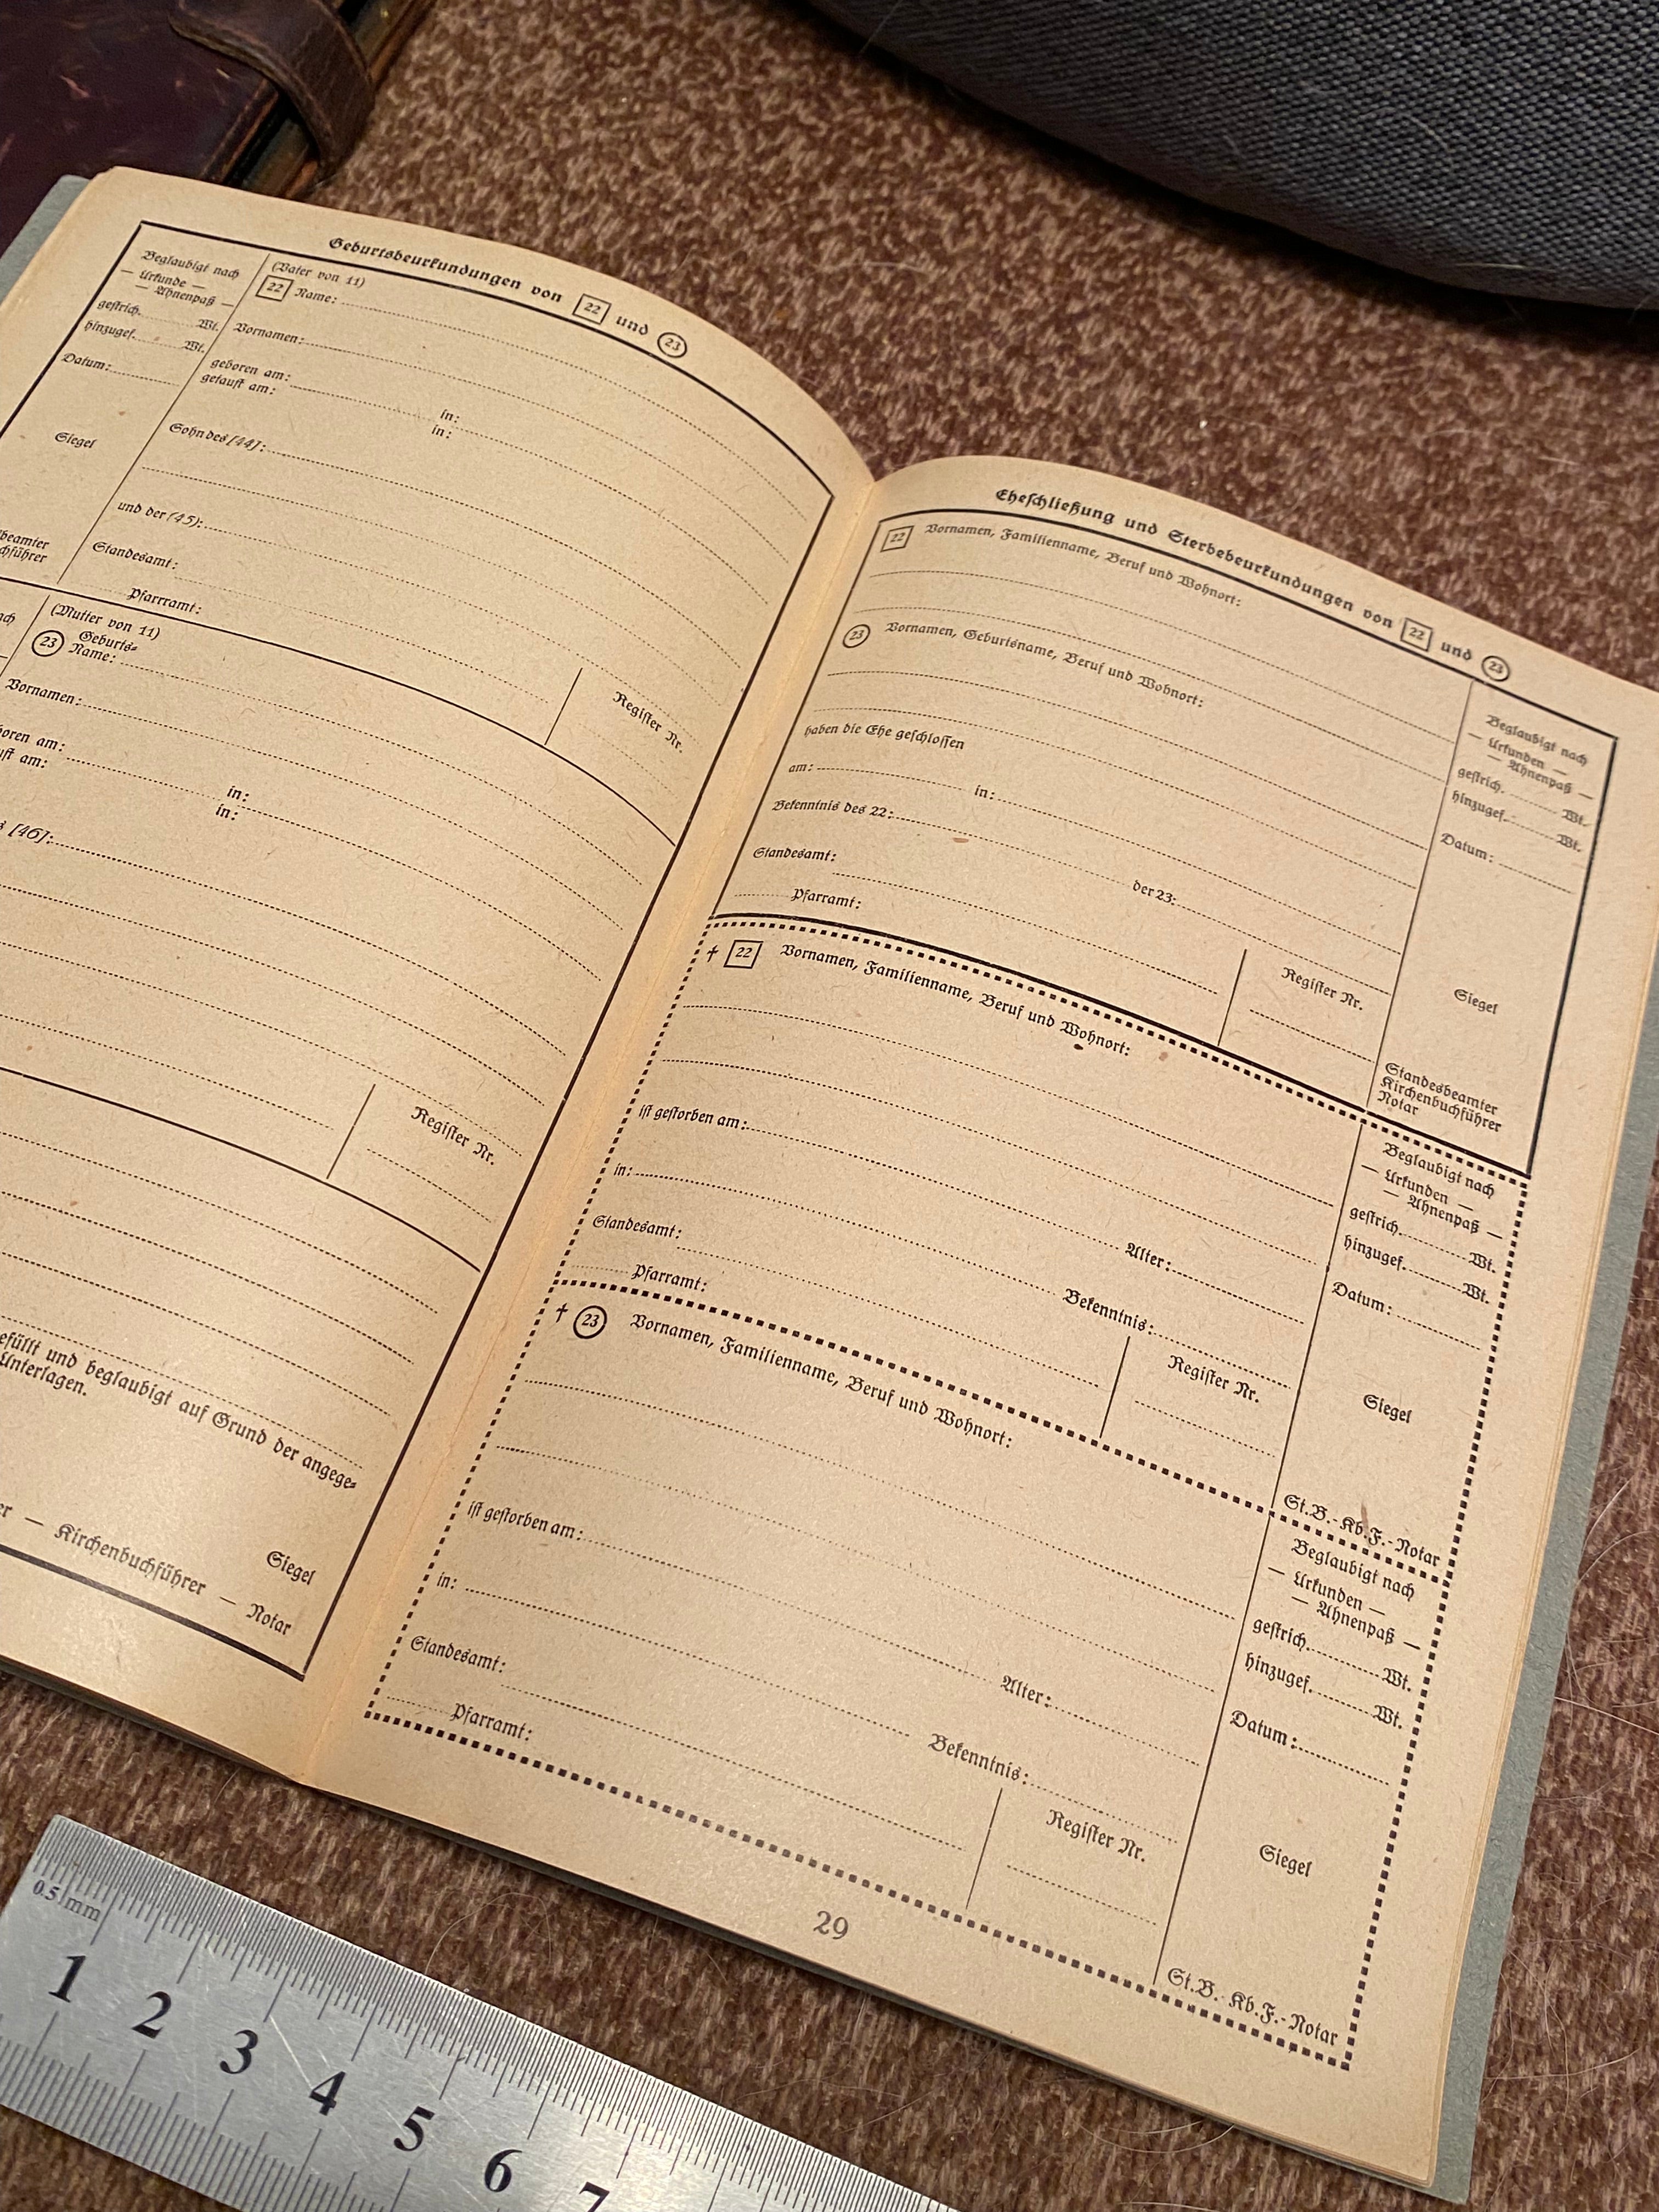 Geburtsbeurkundungen von 22 und 23
Beglaubigt nach
— Urkunde —
— Ahnenpaß —
gestrich. Wt.
hinzugef. Wt.
Datum:
Siegel
beamter
chführer
(Vater von 11)
22 Name:
Vornamen:
geboren am: in:
getauft am: in:
Sohn des [44]:
und der (45):
Standesamt:
Pfarramt:
Register Nr.
ach
(Mutter von 11)
23 Geburts=
Name:
Vornamen:
oren am: in:
uft am: in:
s [46]:
Register Nr.
efüllt und beglaubigt auf Grund der angege=
Unterlagen.
Siegel
er — Kirchenbuchführer — Notar
Eheschließung und Sterbebeurkundungen von 22 und 23
22 Vornamen, Familienname, Beruf und Wohnort:
23 Vornamen, Geburtsname, Beruf und Wohnort:
haben die Ehe geschlossen
am: in:
Bekenntnis des 22: der 23:
Standesamt:
Pfarramt:
Register Nr.
Beglaubigt nach
— Urkunden —
— Ahnenpaß —
gestrich. Wt.
hinzugef.: Wt.
Datum:
Siegel
Standesbeamter
Kirchenbuchführer
Notar
† 22 Vornamen, Familienname, Beruf und Wohnort:
ist gestorben am:
in: Alter:
Standesamt: Bekenntnis:
Pfarramt:
Register Nr.
Beglaubigt nach
— Urkunden —
— Ahnenpaß —
gestrich. Wt.
hinzugef. Wt.
Datum:
Siegel
St.B.-Kb.F.-Notar
† 23 Vornamen, Familienname, Beruf und Wohnort:
ist gestorben am:
in: Alter:
Standesamt: Bekenntnis:
Pfarramt:
Register Nr.
Beglaubigt nach
— Urkunden —
— Ahnenpaß —
gestrich. Wt.
hinzugef. Wt.
Datum:
Siegel
St.B.-Kb.F.-Notar
29
0.5 mm
1 2 3 4 5 6 7